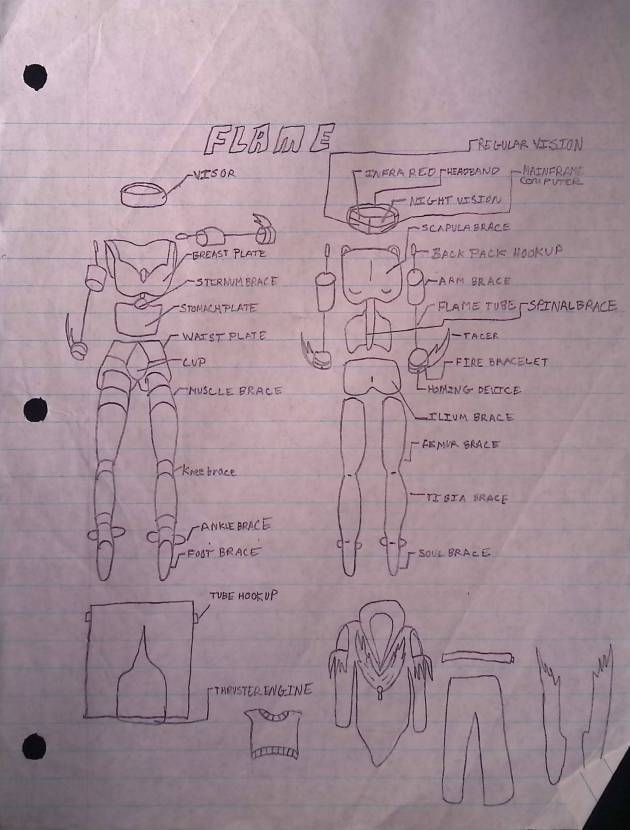 FLAME
REGULAR VISION
VISOR
INFRARED
HEADBAND
MAINFRAME
COMPUTER
NIGHT VISION
SCAPULA BRACE
BREAST PLATE
BACK PACK HOOKUP
STERNUM BRACE
ARM BRACE
STOMACH PLATE
FLAME TUBE
SPINAL BRACE
WAIST PLATE
TACER
CUP
FIRE BRACELET
MUSCLE BRACE
HOMING DEVICE
ILIUM BRACE
FEMUR BRACE
Knee brace
TIBIA BRACE
ANKLE BRACE
FOOT BRACE
SOUL BRACE
TUBE HOOKUP
THRUSTER ENGINE